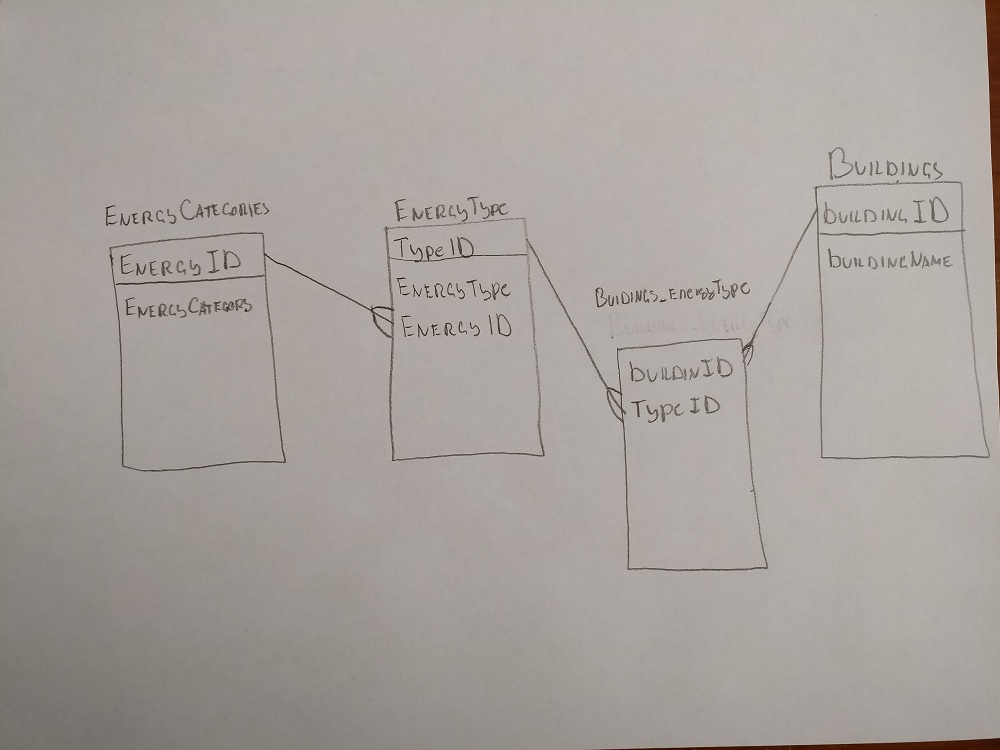 EnergyCategories
EnergyID
EnergyCategory
EnergyType
TypeID
EnergyType
EnergyID
Buidings_EnergyType
buildinID
TypeID
Buildings
buildingID
buildingName